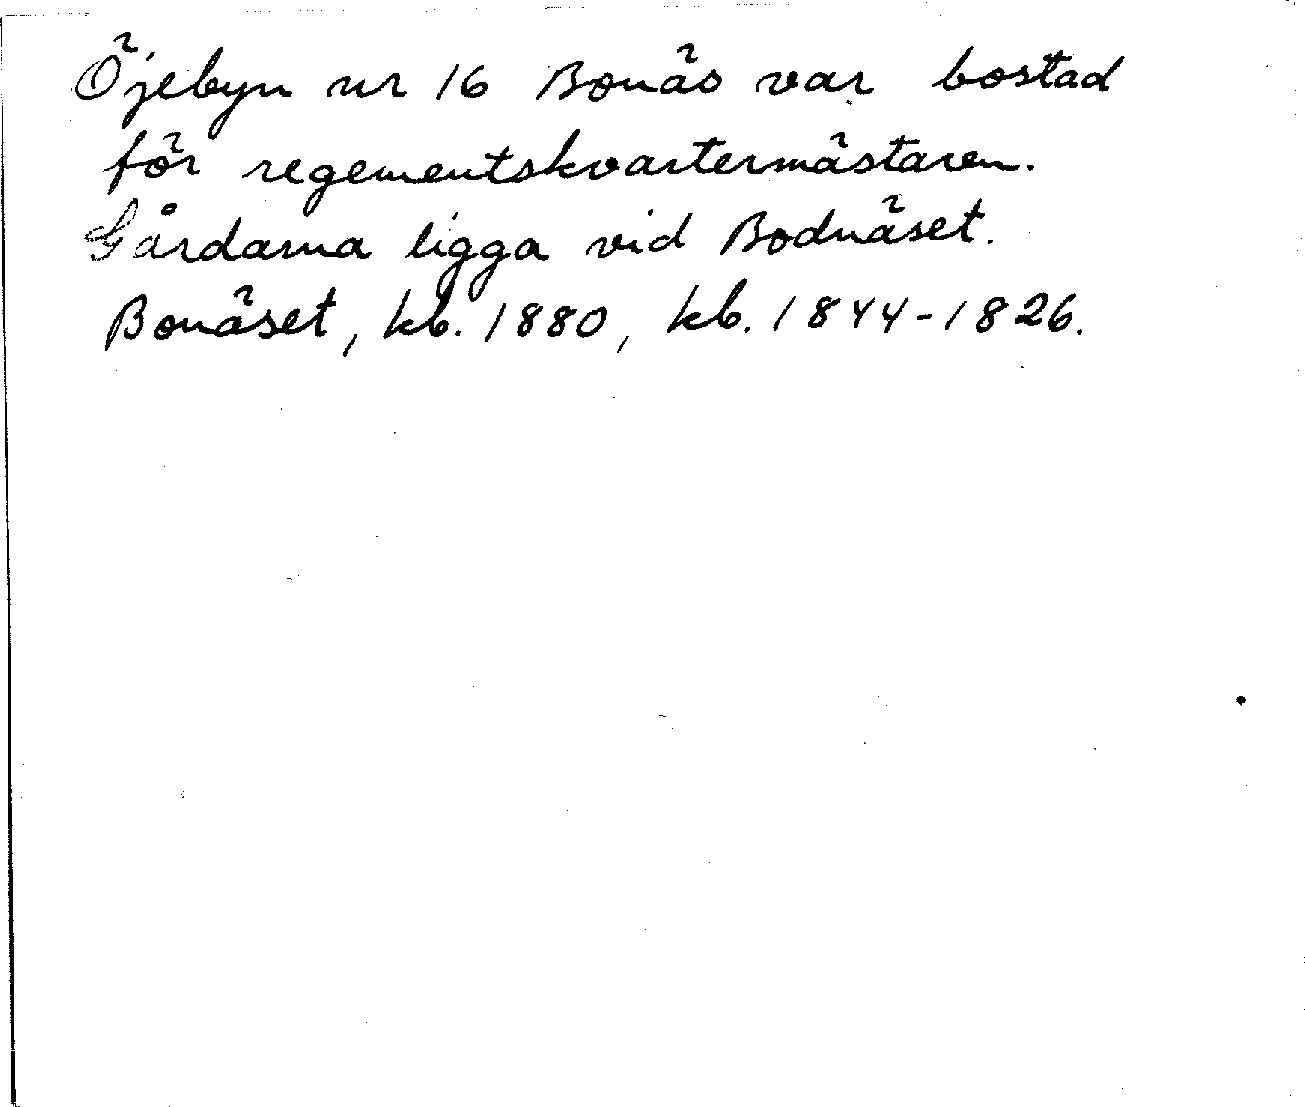 Öjebyn nr 16 Bonäs var bostad
för regementskvartermästaren.
Gårdarna ligga vid Bodnäset.
Bonäset, kb. 1880, kb. 1844-1826.